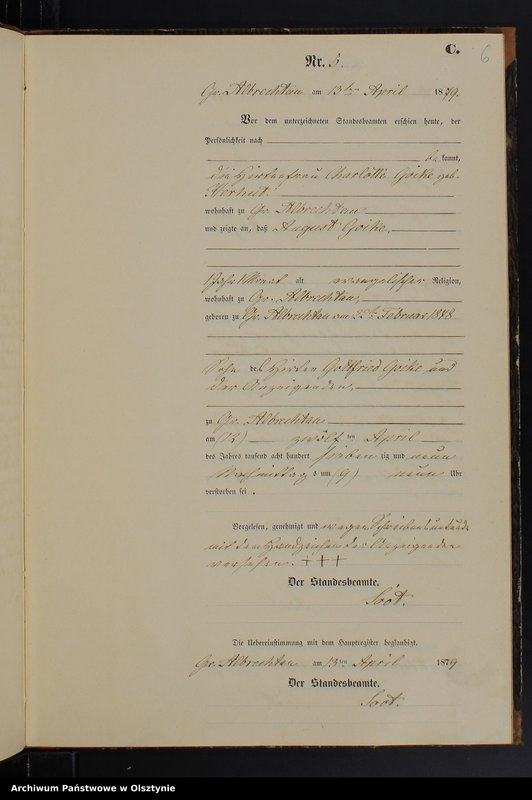 C.
6
Nr. 6.
Gr. Albrechtau am 13ten April 1879.
Vor dem unterzeichneten Standesbeamten erschien heute, der
Persönlichkeit nach
be kannt,
die Hirtenfrau Charlotte Goike geb.
wohnhaft zu Gr. Albrechtau
und zeigte an, daß August Goike,
1 Jahr 1 Monat alt evangelischer Religion,
wohnhaft zu Gr. Albrechtau,
geboren zu Gr. Albrechtau am Februar 1878
Sohn des Hirten Gottfried Goike und
der Anzeigenden,
zu Gr. Albrechtau
am (12) zwölf ten April
des Jahres tausend acht hundert sieben zig und neun
Nachmittag s um (9) neun Uhr
verstorben sei .
Vorgelesen, genehmigt und wegen Schreibensunkunde
mit den Handzeichen der Anzeigenden
versehen. +++
Der Standesbeamte.
Soot.
Die Uebereinstimmung mit dem Hauptregister beglaubigt.
Gr. Albrechtau am 13ten April 1879
Der Standesbeamte.
Soot.
Archiwum Państwowe w Olsztynie